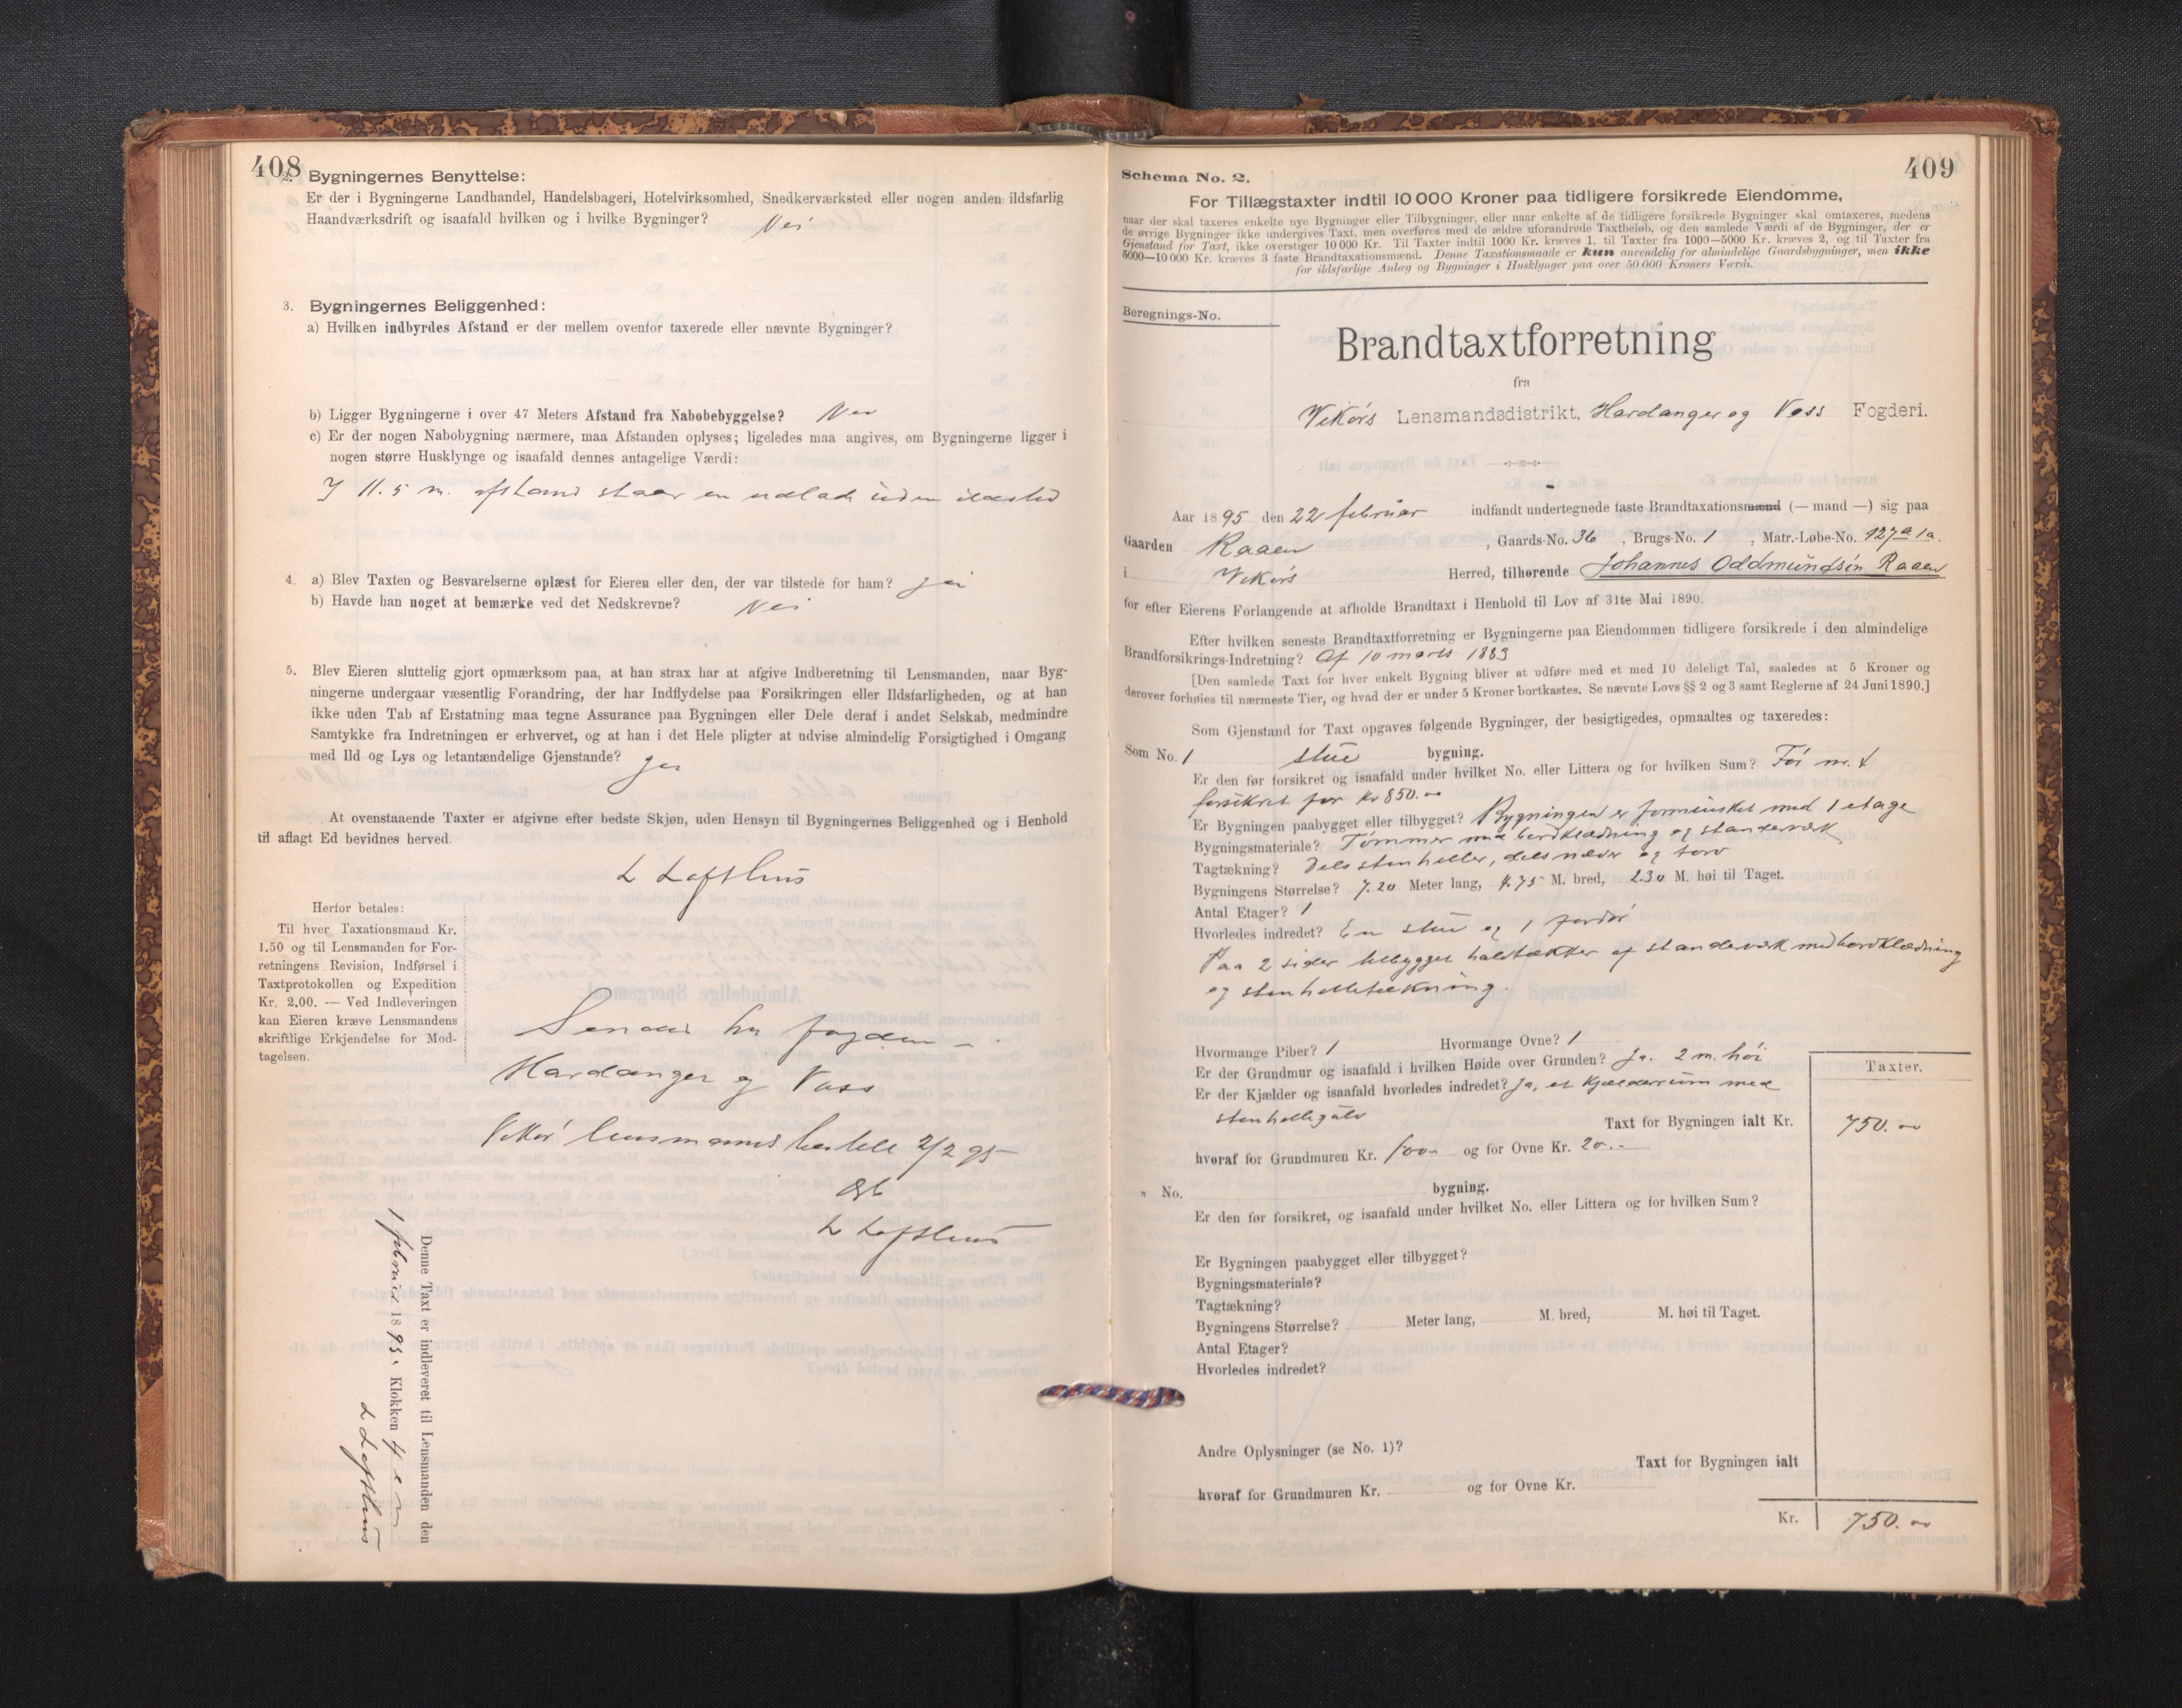 408
2. Bygningernes Benyttelse:
Er der i Bygningerne Landhandel, Handelsbageri, Hotelvirksomhed, Snedkerværksted eller nogen anden ildsfarlig
Haandværksdrift og isaafald hvilken og i hvilke Bygninger? Nei
3. Bygningernes Beliggenhed:
a) Hvilken indbyrdes Afstand er der mellem ovenfor taxerede eller nævnte Bygninger?
b) Ligger Bygningerne i over 47 Meters Afstand fra Nabobebyggelse? Nei
c) Er der nogen Nabobygning nærmere, maa Afstanden oplyses; ligeledes maa angives, om Bygningerne ligger i
nogen større Husklynge og isaafald dennes antagelige Værdi:
I 11.5 m. afstand staar en udlade uden ildsted
4. a) Blev Taxten og Besvarelserne oplæst for Eieren eller den, der var tilstede for ham? Ja
b) Havde han noget at bemærke ved det Nedskrevne? Nei
5. Blev Eieren sluttelig gjort opmærksom paa, at han strax har at afgive Indberetning til Lensmanden, naar Byg-
ningerne undergaar væsentlig Forandring, der har Indflydelse paa Forsikringen eller Ildsfarligheden, og at han
ikke uden Tab af Erstatning maa tegne Assurance paa Bygningen eller Dele deraf i andet Selskab, medmindre
Samtykke fra Indretningen er erhvervet, og at han i det Hele pligter at udvise almindelig Forsigtighed i Omgang
med Ild og Lys og letantændelige Gjenstande? Ja
At ovenstaaende Taxter er afgivne efter bedste Skjøn, uden Hensyn til Bygningernes Beliggenhed og i Henhold
til aflagt Ed bevidnes herved.
L Lofthus
Herfor betales:
Til hver Taxationsmand Kr.
1.50 og til Lensmanden for For-
retningens Revision, Indførsel i
Taxtprotokollen og Expedition
Kr. 2.00. — Ved Indleveringen
kan Eieren kræve Lensmandens
skriftlige Erkjendelse for Mod-
tagelsen.
Sendes hr fogden
Hardanger og Voss
Vikør lensmannsbestill 2/2 95
L Lofthus
Denne Taxt er indleveret til Lensmanden den
1 februar 1895. Klokken 4 em
L Lofthus
409
Schema No. 2.
For Tillægstaxter indtil 10 000 Kroner paa tidligere forsikrede Eiendomme,
naar der skal taxeres enkelte nye Bygninger eller Tilbygninger, eller naar enkelte af de tidligere forsikrede Bygninger skal omtaxeres, medens
de øvrige Bygninger ikke undergives Taxt, men overføres med de ældre uforandrede Taxtbeløb, og den samlede Værdi af de Bygninger, der er
Gjenstand for Taxt, ikke overstiger 10 000 Kr. Til Taxter indtil 1000 Kr. kræves 1, til Taxter fra 1000—5000 Kr. kræves 2, og til Taxter fra
5000—10 000 Kr. kræves 3 faste Brandtaxationsmænd. Denne Taxationsmaade er kun anvendelig for almindelige Gaardsbygninger, men ikke
for ildsfarlige Anlæg og Bygninger i Husklynger paa over 50 000 Kroners Værdi.
Beregnings-No.
Brandtaxtforretning
fra
Vikørs Lensmandsdistrikt, Hardanger og Voss Fogderi.
Aar 1895 den 22 februar indfandt undertegnede faste Brandtaxationsmænd (— mand —) sig paa
Gaarden Raaen, Gaards-No. 36, Brugs-No. 1, Matr.-Løbe-No. 127a 1a.
i Vikørs Herred, tilhørende Johannes Oddmundsen Raaen
for efter Eierens Forlangende at afholde Brandtaxt i Henhold til Lov af 31te Mai 1890.
Efter hvilken seneste Brandtaxtforretning er Bygningerne paa Eiendommen tidligere forsikrede i den almindelige
Brandforsikrings-Indretning? Af 10 marts 1883
[Den samlede Taxt for hver enkelt Bygning bliver at udføre med et med 10 deleligt Tal, saaledes at 5 Kroner og
derover forhøies til nærmeste Tier, og hvad der er under 5 Kroner bortkastes. Se nævnte Lovs §§ 2 og 3 samt Reglerne af 24 Juni 1890.]
Som Gjenstand for Taxt opgaves følgende Bygninger, der besigtigedes, opmaaltes og taxeredes:
Som No. 1 stue bygning.
Er den før forsikret og isaafald under hvilket No. eller Littera og for hvilken Sum? Før nr.
forsikret for Kr 850.00
Er Bygningen paabygget eller tilbygget? Bygningen er forminsket med 1 etage
Bygningsmateriale? Tømmer med bordklædning og standerværk
Tagtækning? Dels stenheller, dels næver og torv
Bygningens Størrelse? 7.20 Meter lang, 4.75 M. bred, 2.30 M. høi til Taget.
Antal Etager? 1
Hvorledes indredet? En stue og 1 fordør
Paa 2 sider tilbygget halvtækter af standerværk med bordklædning
og stenhelletækning.
Hvormange Piber? 1 Hvormange Ovne? 1
Er der Grundmur og isaafald i hvilken Høide over Grunden? Ja. 2 m. høi
Er der Kjælder og isaafald hvorledes indredet? Ja, et Kjælderrum med
stenhellegulv Taxt for Bygningen ialt Kr.
Taxter.
750.00
hvoraf for Grundmuren Kr. 100- og for Ovne Kr. 20.-
" No. bygning.
Er den før forsikret, og isaafald under hvilket No. eller Littera og for hvilken Sum?
Er Bygningen paabygget eller tilbygget?
Bygningsmateriale?
Tagtækning?
Bygningens Størrelse? Meter lang, M. bred, M. høi til Taget.
Antal Etager?
Hvorledes indredet?
Andre Oplysninger (se No. 1)?
Taxt for Bygningen ialt
hvoraf for Grundmuren Kr. og for Ovne Kr.
Kr. 750.00